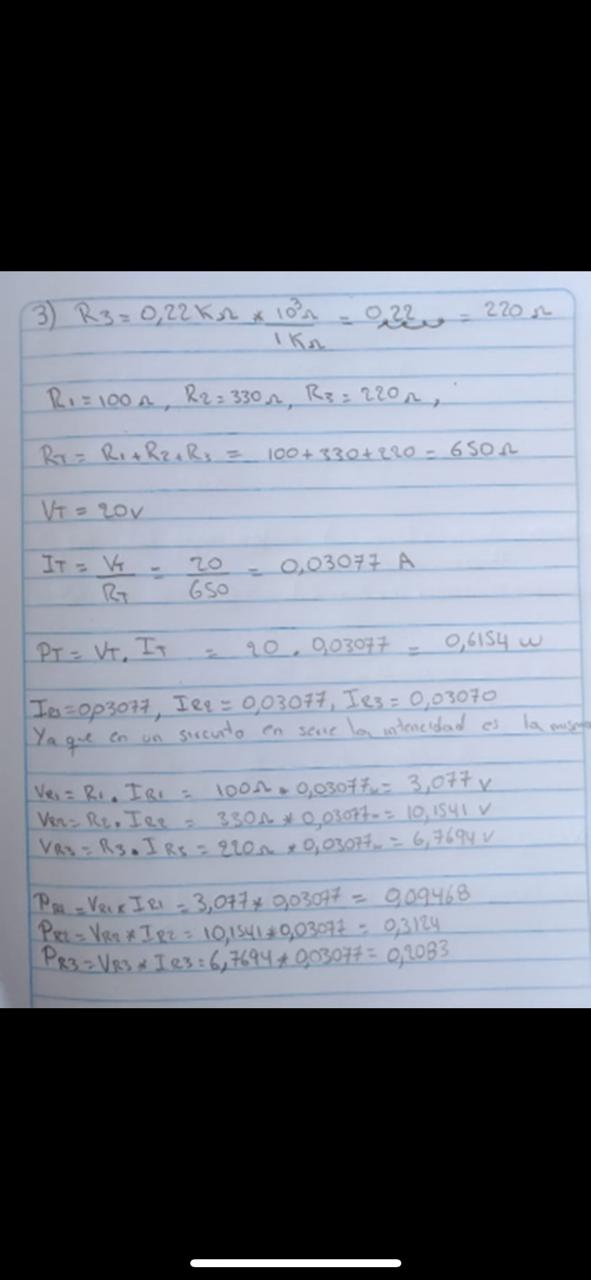 3) R3 = 0,22 KΩ * 10³Ω / 1 KΩ = 0,22 = 220 Ω
R1 = 100 Ω, R2 = 330 Ω, R3 = 220 Ω,
RT = R1 + R2 + R3 = 100 + 330 + 220 = 650 Ω
VT = 20v
IT = VT / RT = 20 / 650 = 0,03077 A
PT = VT . IT = 20 . 0,03077 = 0,6154 w
IR1 = 0,03077, IR2 = 0,03077, IR3 = 0,03070
Ya que en un circuito en serie la intencidad es la misma
VR1 = R1 . IR1 = 100Ω * 0,03077 = 3,077 v
VR2 = R2 . IR2 = 330Ω * 0,03077 = 10,1541 V
VR3 = R3 . IR3 = 220Ω * 0,03077 = 6,7694 v
PR1 = VR1 * IR1 = 3,077 * 0,03077 = 0,09468
PR2 = VR2 * IR2 = 10,1541 * 0,03077 = 0,3124
PR3 = VR3 * IR3 = 6,7694 * 0,03077 = 0,2083